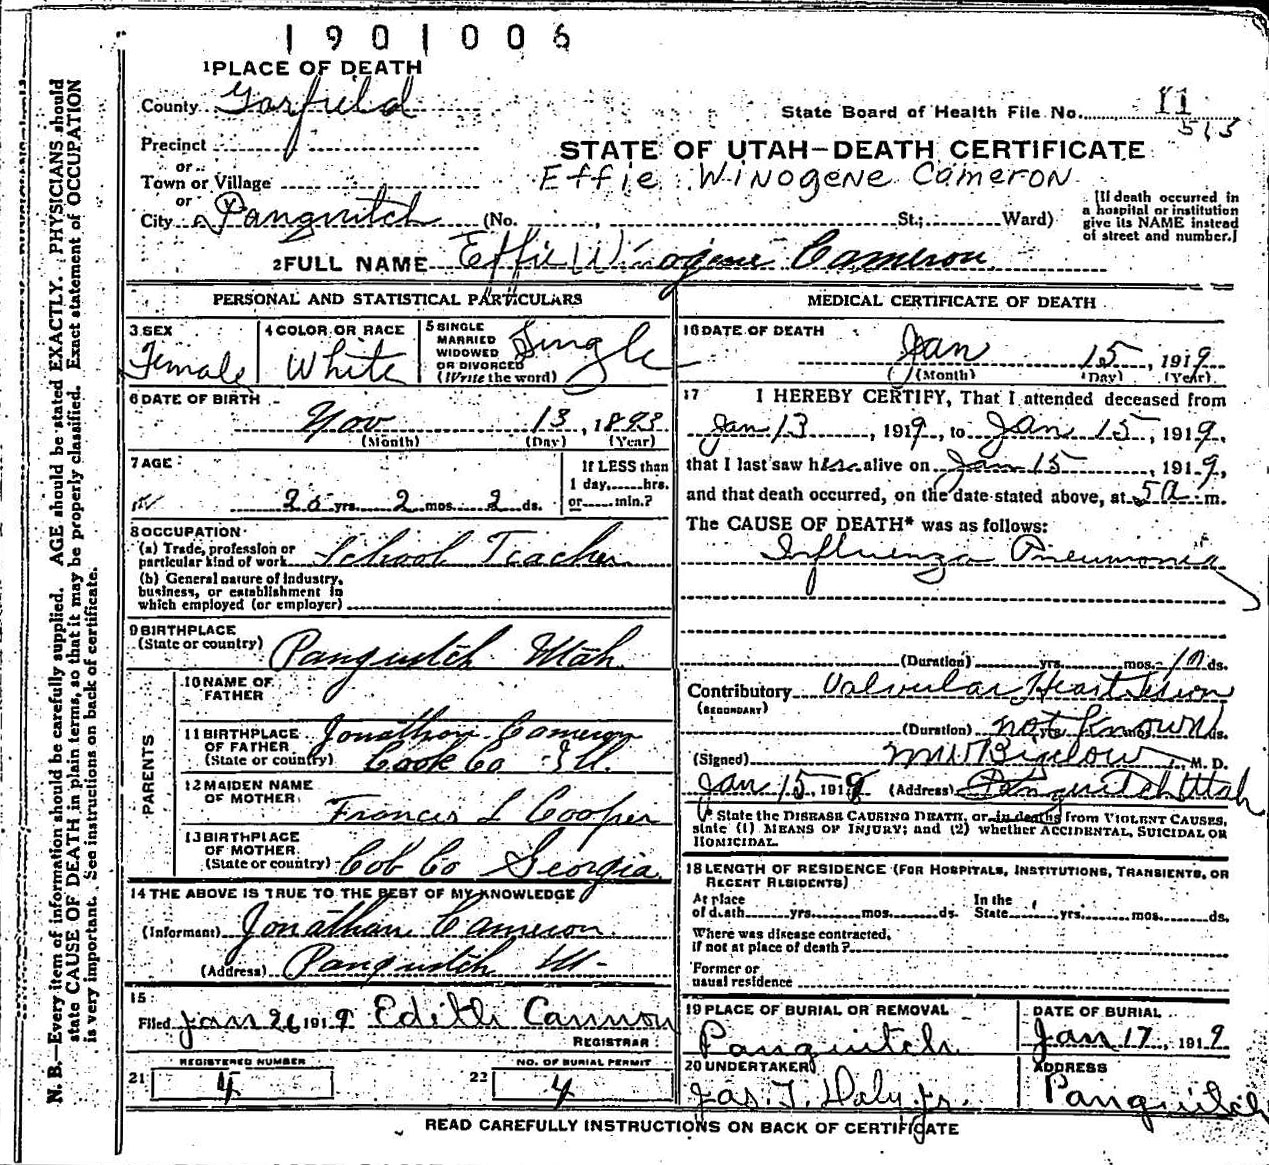 1901006
1 PLACE OF DEATH
County Garfield
State Board of Health File No. 11
515
Precinct
or
STATE OF UTAH—DEATH CERTIFICATE
Town or Village
Effie Winogene Cameron
or
City Panguitch (No. , St.; Ward)
[If death occurred in
a hospital or institution
give its NAME instead
of street and number.]
2 FULL NAME Effie Winogene Cameron
PERSONAL AND STATISTICAL PARTICULARS
3 SEX
Female
4 COLOR OR RACE
White
5 SINGLE
MARRIED
WIDOWED
OR DIVORCED
(Write the word)
Single
6 DATE OF BIRTH
Nov 13, 1893
(Month) (Day) (Year)
7 AGE
25 yrs. 2 mos. 2 ds.
If LESS than
1 day, hrs.
or min.?
8 OCCUPATION
(a) Trade, profession or
particular kind of work School Teacher
(b) General nature of Industry,
business, or establishment in
which employed (or employer)
9 BIRTHPLACE
(State or country) Panguitch Utah
PARENTS
10 NAME OF
FATHER
Jonathan Cameron
11 BIRTHPLACE
OF FATHER
(State or country) Cook Co Ill.
12 MAIDEN NAME
OF MOTHER
Frances L Cooper
13 BIRTHPLACE
OF MOTHER
(State or country) Cob Co Georgia
14 THE ABOVE IS TRUE TO THE BEST OF MY KNOWLEDGE
(Informant) Jonathan Cameron
(Address) Panguitch Ut
15
Filed Jan 26 1919 Edith Cannon
REGISTRAR
REGISTERED NUMBER
21 4
NO. OF BURIAL PERMIT
22 4
MEDICAL CERTIFICATE OF DEATH
16 DATE OF DEATH
Jan 15, 1919
(Month) (Day) (Year)
17 I HEREBY CERTIFY, That I attended deceased from
Jan 13, 1919, to Jan 15, 1919,
that I last saw her alive on Jan 15, 1919,
and that death occurred, on the date stated above, at 5 a. m.
The CAUSE OF DEATH* was as follows:
Influenza Pneumonia
(Duration) yrs. mos. 10 ds.
Contributory Valvular Heart Lesion
(SECONDARY)
(Duration) not Known ds.
(Signed) M W Bigelow, M. D.
Jan 15, 1919 (Address) Panguitch Utah
* State the DISEASE CAUSING DEATH, or in deaths from VIOLENT CAUSES,
state (1) MEANS OF INJURY; and (2) whether ACCIDENTAL, SUICIDAL OR
HOMICIDAL.
18 LENGTH OF RESIDENCE (FOR HOSPITALS, INSTITUTIONS, TRANSIENTS, OR
RECENT RESIDENTS)
At place
of death yrs. mos. ds.
In the
State yrs. mos. ds.
Where was disease contracted,
if not at place of death?
Former or
usual residence
19 PLACE OF BURIAL OR REMOVAL
Panguitch
DATE OF BURIAL
Jan 17, 1919
20 UNDERTAKER
Jas. T. Daly Jr.
ADDRESS
Panguitch
READ CAREFULLY INSTRUCTIONS ON BACK OF CERTIFICATE
N. B.—Every item of information should be carefully supplied. AGE should be stated EXACTLY. PHYSICIANS should
state CAUSE OF DEATH in plain terms, so that it may be properly classified. Exact statement of OCCUPATION
is very important. See instructions on back of certificate.